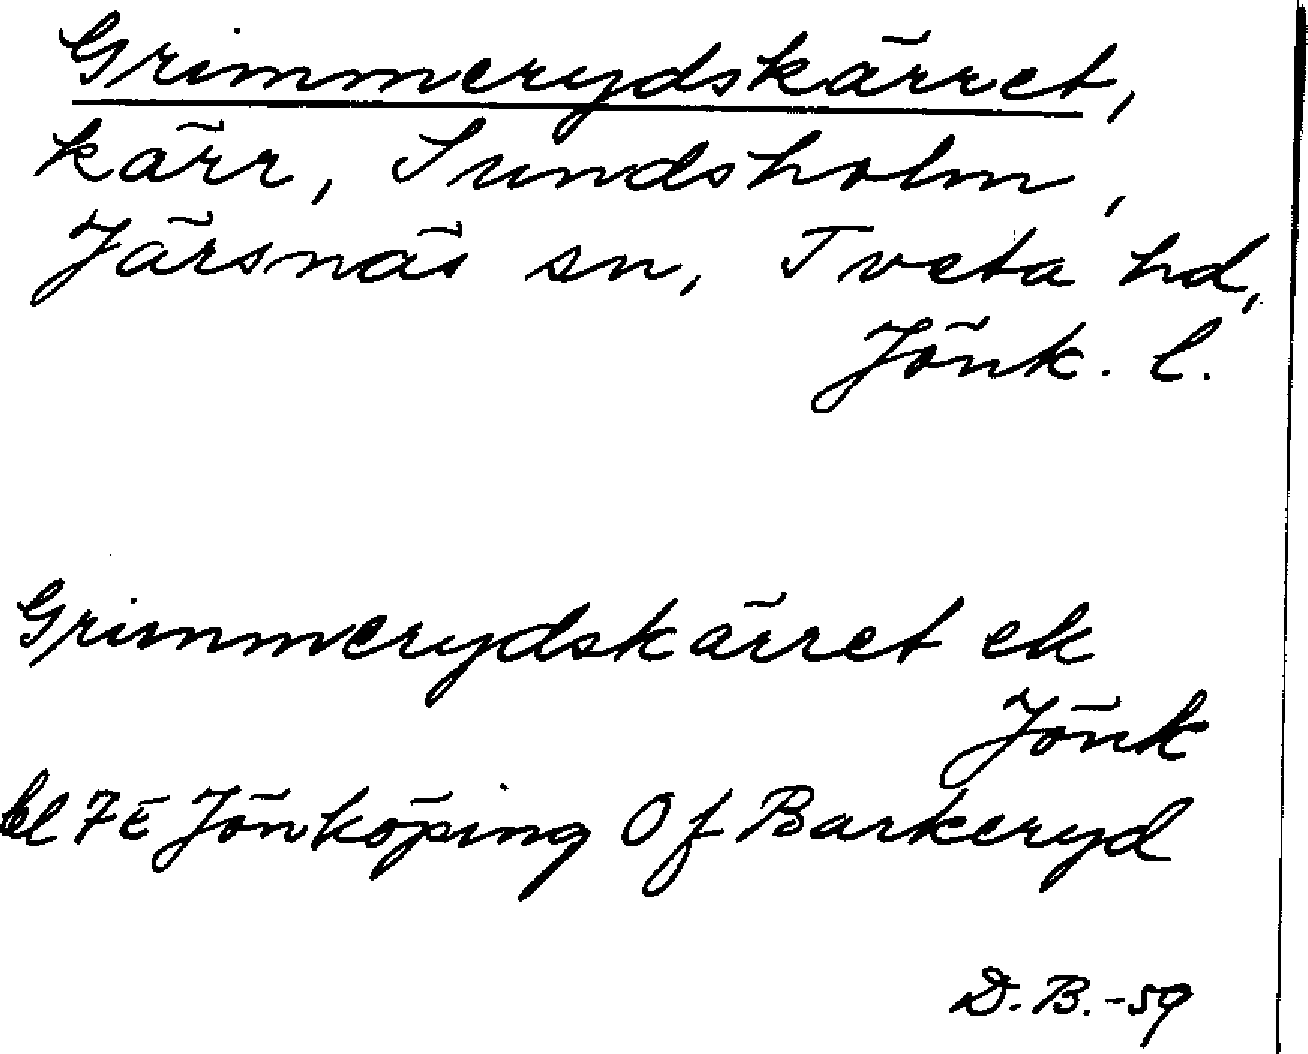 Grimmerydskärret,
kärr, Sundsholm,
Järsnäs sn, Tveta hd,
Jönk. l.
Grimmerydskärret ek
Jönk
bl 7E Jönköping Of Barkeryd
D.B.-59